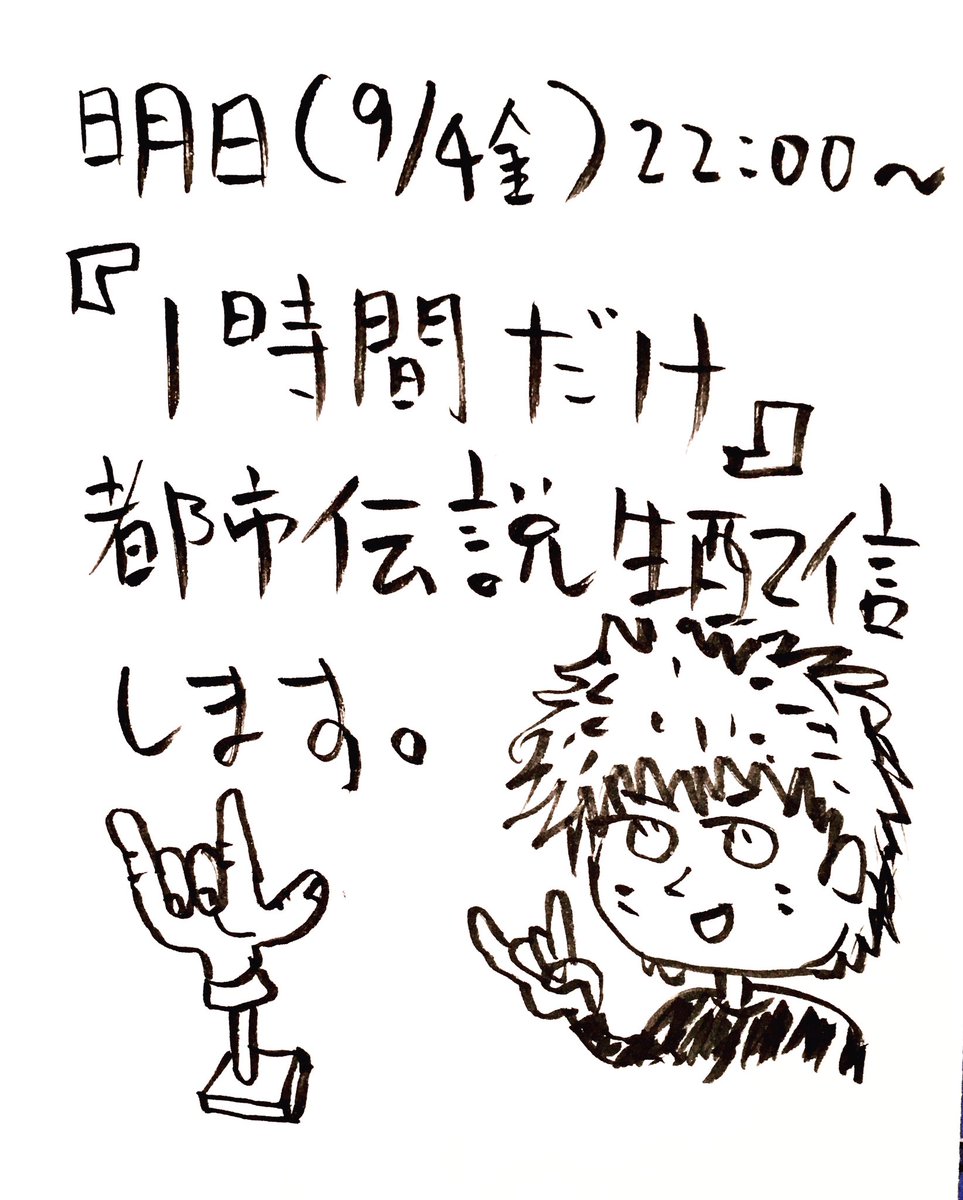 明日(9/4金)22:00~
『1時間だけ』
都市伝説生配信
します。